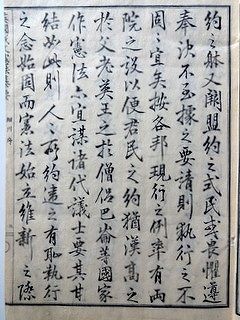 約之躰又闕盟約之式民或畏懼遵
奉決不據之要請則執行之不
固固宜矣按各邦現行之例率有両
院之設以便君民之約猶漢高之
於父老英王之於僧侶巴崙普國家
作憲法亦宜謀諸代議士要其甘
結如此則人人所約違之有恥執行
之念始固而憲法始立維新之際